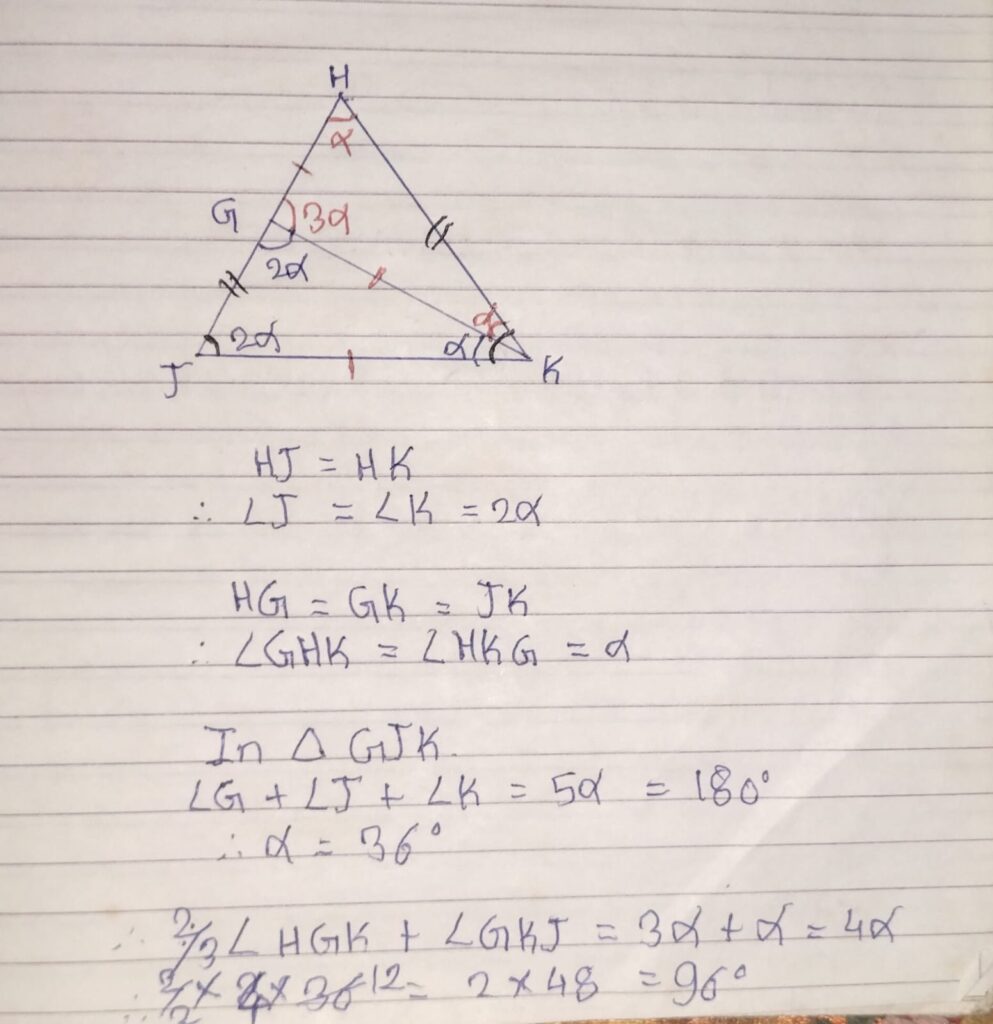 H
α
G 3α
2α
2α α α
J K
HJ = HK
∴ ∠J = ∠K = 2α
HG = GK = JK
∴ ∠GHK = ∠HKG = α
In △ GJK.
∠G + ∠J + ∠K = 5α = 180°
∴ α = 36°
∴ 2/3 ∠HGK + ∠GKJ = 3α + α = 4α
∴ × 36 12 = 2 × 48 = 96°